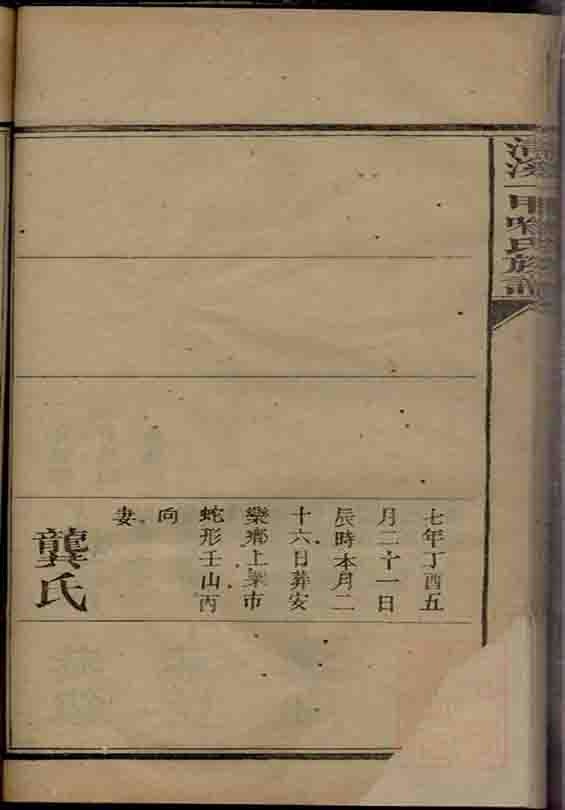 族
七年丁酉五
月二十一日
辰時本月二
十六日葬安
樂鄉上業市
蛇形壬山丙
向
妻
龔氏